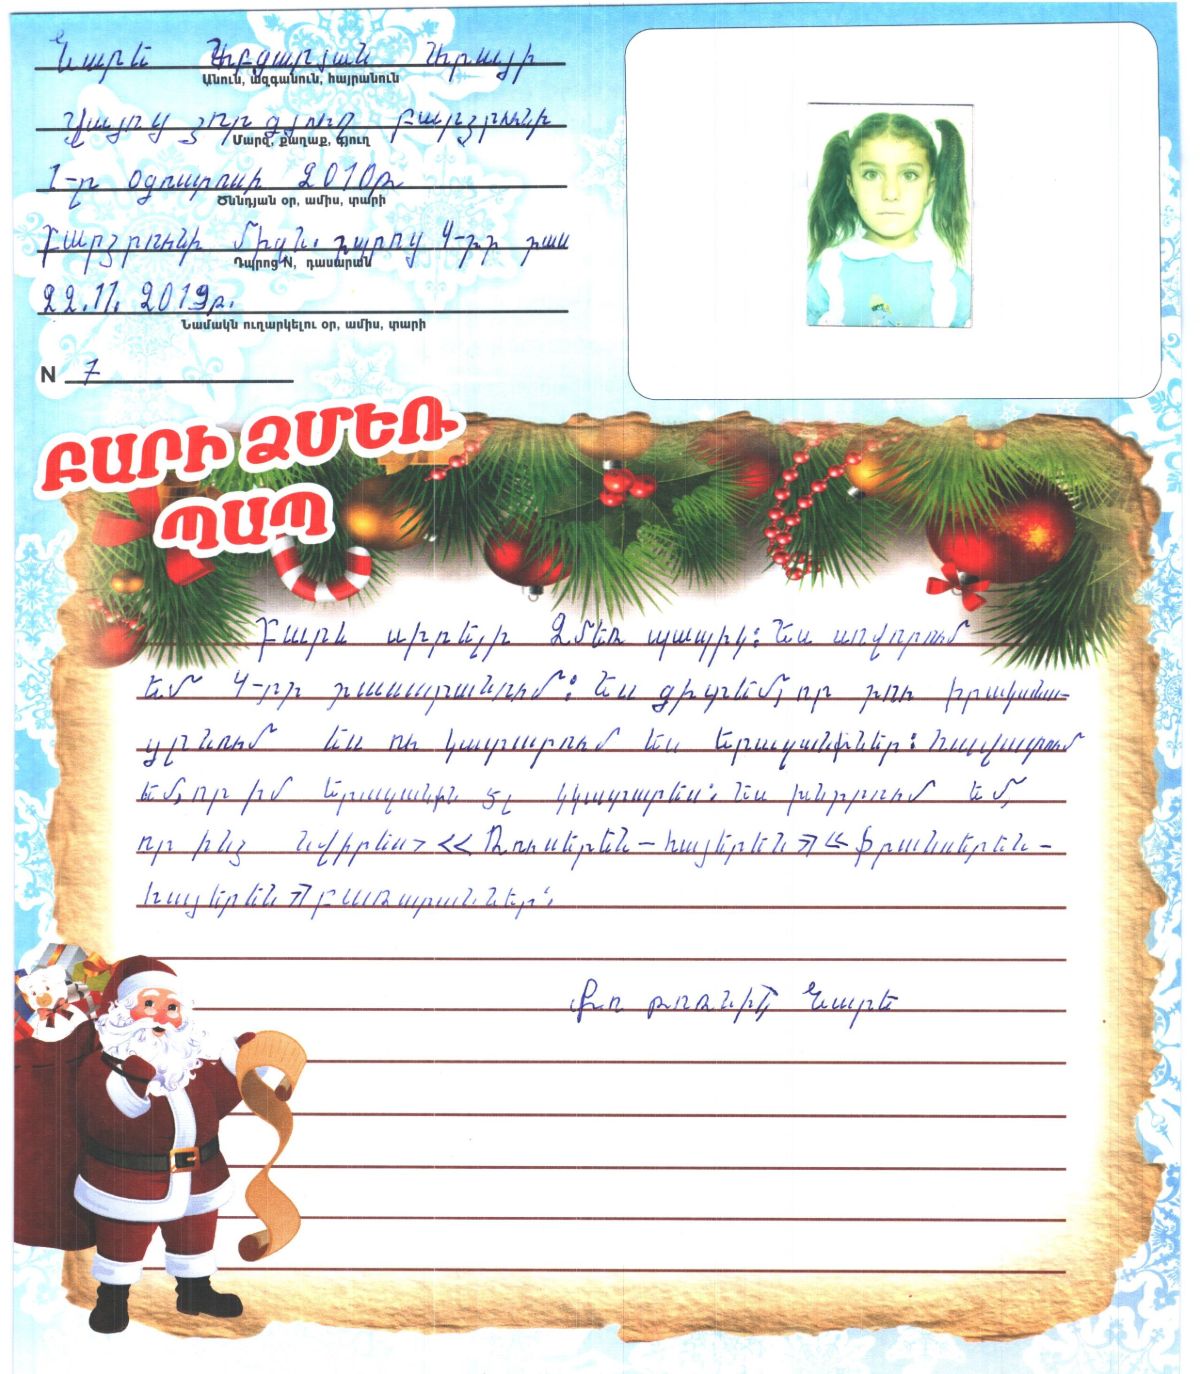 Նարե Աբգարյան Արայի
Անուն, ազգանուն, հայրանուն
Վայոց ձոր գյուղ Բարձրունի
Մարզ, քաղաք, գյուղ
1-ը օգոստոսի 2010թ
Ծննդյան օր, ամիս, տարի
Բարձրունի միջն. դպրոց 4-րդ դաս
Դպրոց N, դասարան
22.11.2019թ.
Նամակն ուղարկելու օր, ամիս, տարի
N 7
ԲԱՐԻ ՁՄԵՌ
ՊԱՊ
Բարև սիրելի Ձմեռ պապիկ: Ես սովորում
եմ 4-րդ դասարանում: Ես գիտեմ, որ դու իրականա-
ցընում ես ու կատարում ես երազանքներ: Հավատում
եմ, որ իմ երազանքն էլ կկատարես: Ես խնդրում եմ,
որ ինձ նվիրես <<Ռուսերեն-հայերեն>> <<Ֆրանսերեն-
հայերեն>> բառարաններ:
Քո թոռնիկ Նարե